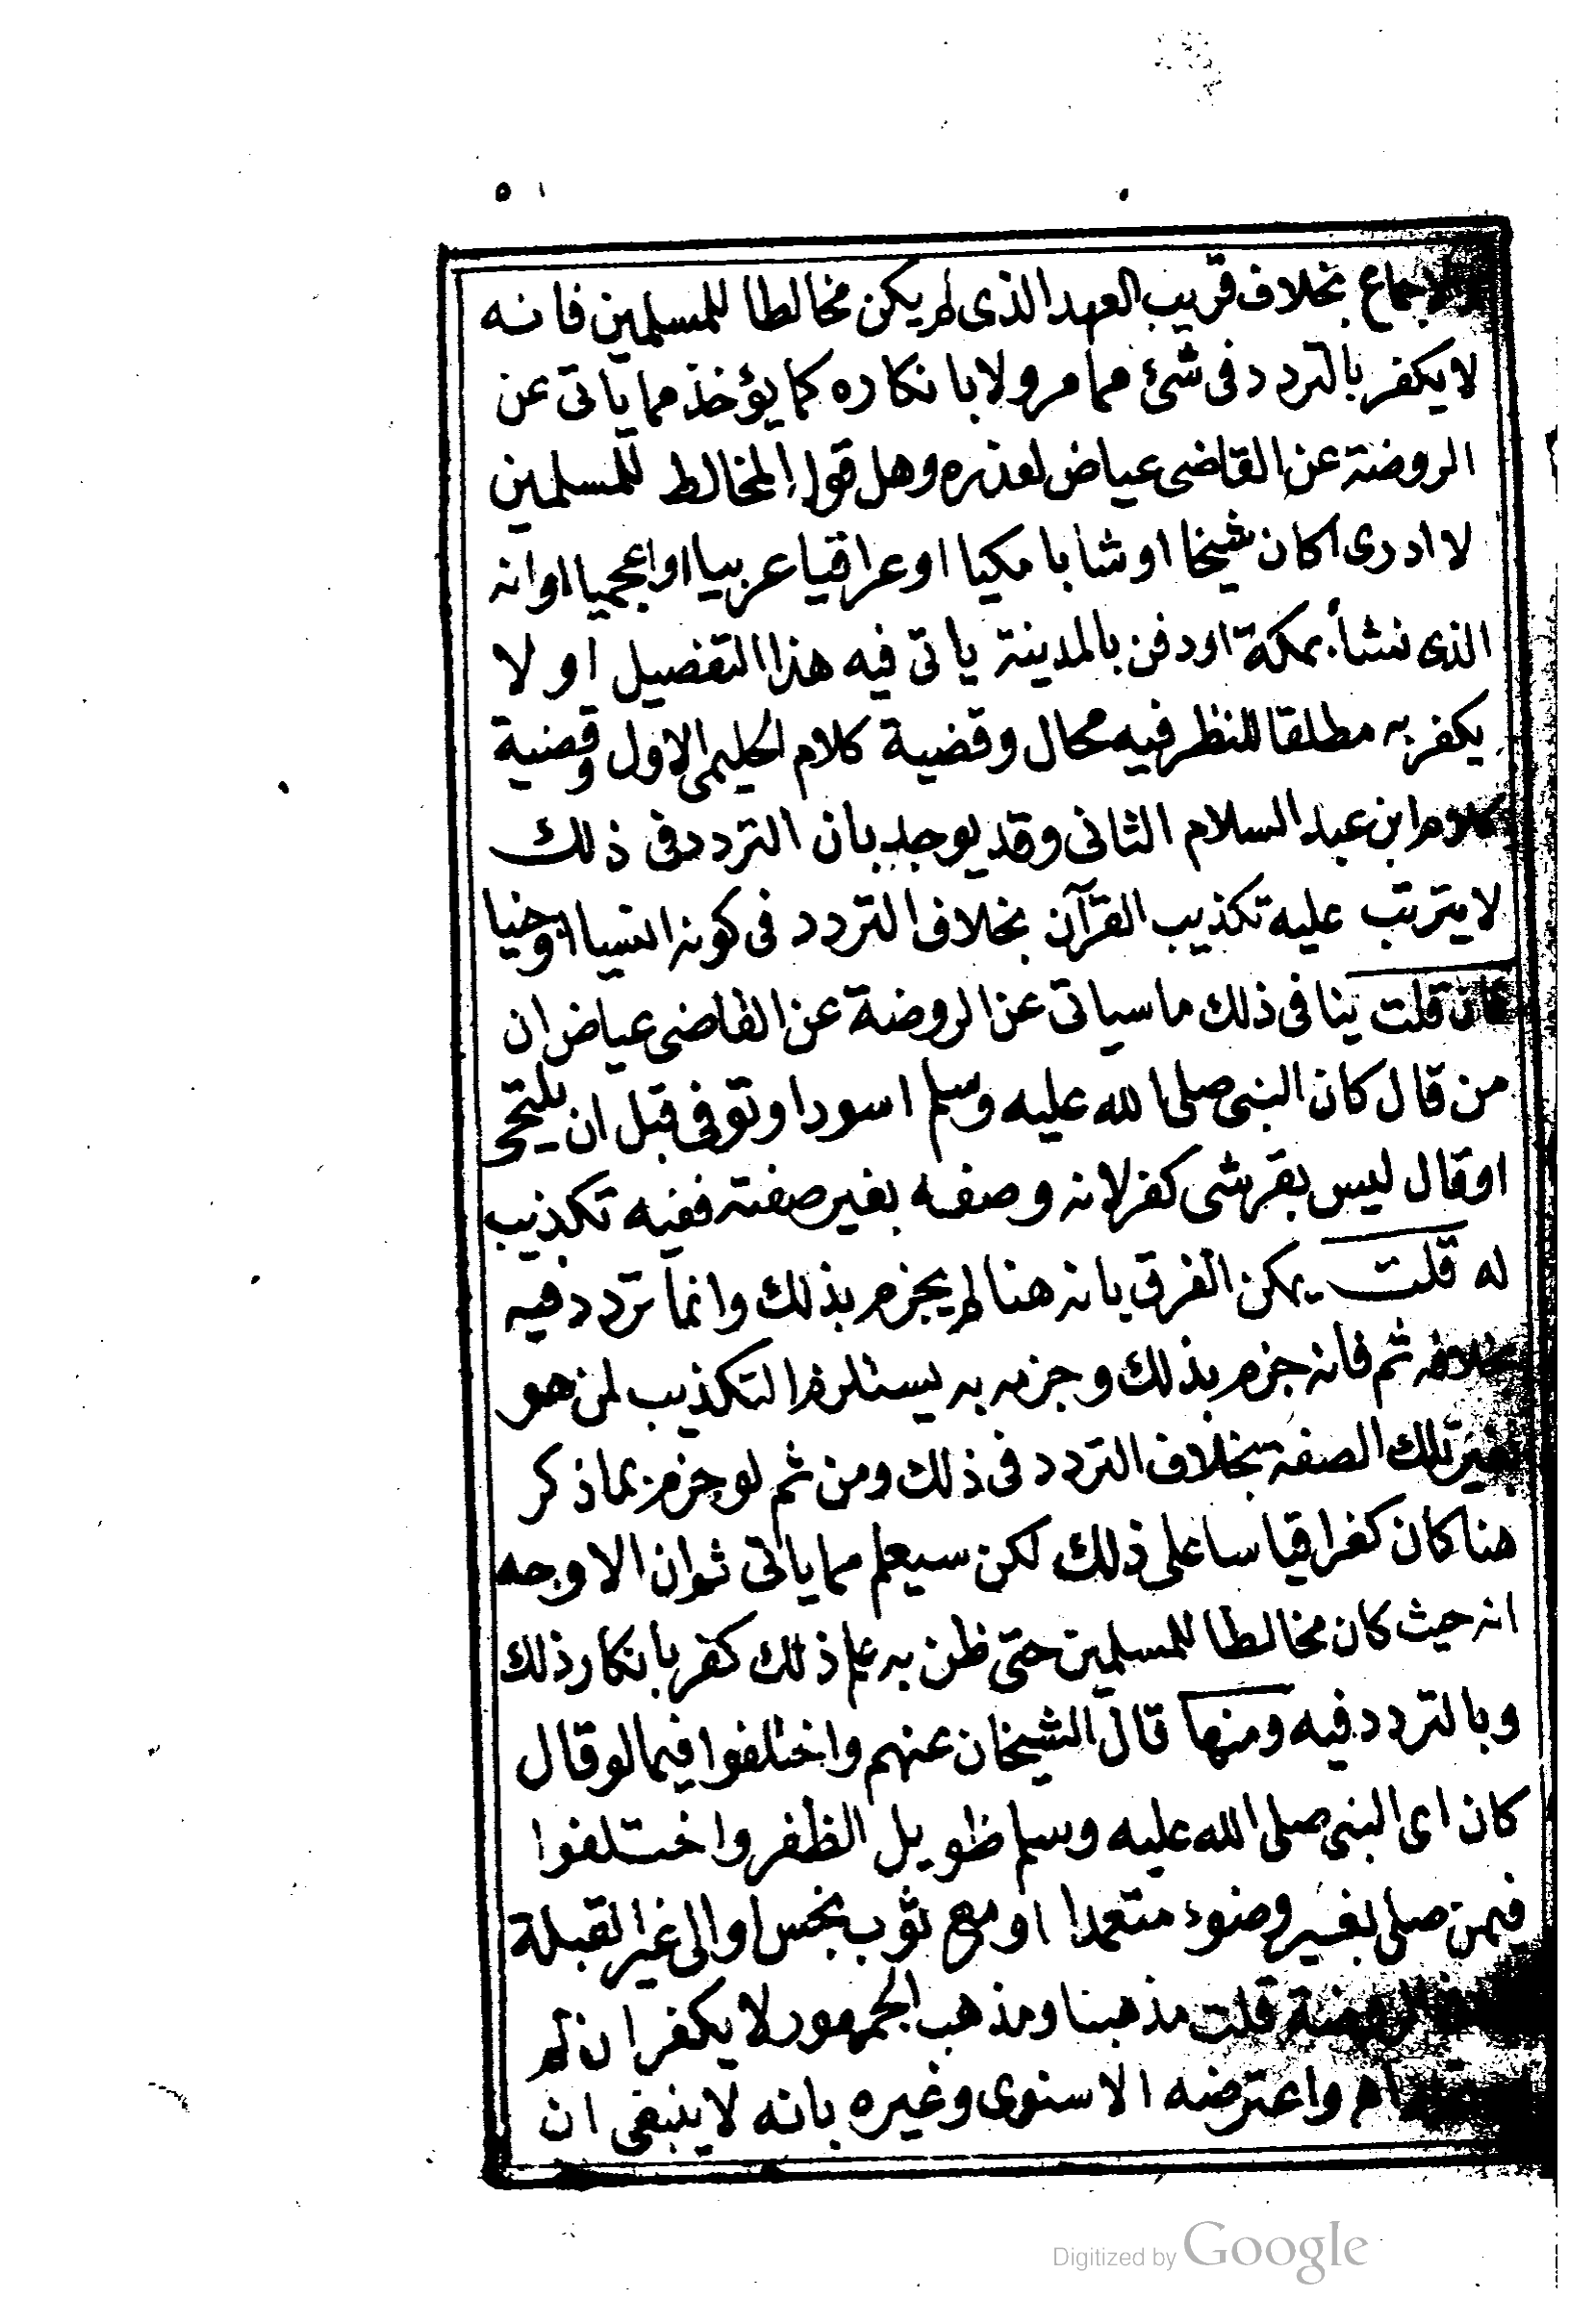 ١٥
والاجماع بخلاف قريب العهد الذى لم يكن مخالطا للمسلمين فانه
لا يكفر بالتردد فى شئ مما مر ولا بانكاره كما يؤخذ مما ياتى عن
الروضة عن القاضى عياض لعذره وهل قول المخالط للمسلمين
لا ادرى اكان شيخا او شابا مكيا او عراقيا عربيا او عجميا او انه
الذى نشأ بمكة او دفن بالمدينة ياتى فيه هذا التفصيل او لا
يكفر به مطلقا للنظر فيه مجال وقضية كلام الحليمى الاول وقضية
كلام ابن عبد السلام الثانى وقد يوجه بان التردد فى ذلك
لا يترتب عليه تكذيب القرآن بخلاف التردد فى كونه انسيا او جنيا
فان قلت ينافى ذلك ما سياتى عن الروضة عن القاضى عياض ان
من قال كان النبى صلى الله عليه وسلم اسود او توفى قبل ان يلتحى
او قال ليس بقرشى كفر لانه وصفه بغير صفته ففيه تكذيب
له قلت يمكن الفرق بانه هنا لم يجزم بذلك وانما تردد فيه
بخلافه ثم فانه جزم بذلك وجزمه به يستلزم التكذيب لمن هو
بغير تلك الصفة بخلاف التردد فى ذلك ومن ثم لو جزم بما ذكر
هنا كان كفرا قياسا على ذلك لكن سيعلم مما ياتى ثم ان الاوجه
انه حيث كان مخالطا للمسلمين حتى ظن به علم ذلك كفر بانكار ذلك
وبالتردد فيه ومنها قال الشيخان عنهم واختلفوا فيما لو قال
كان اى النبى صلى الله عليه وسلم طويل الظفر واختلفوا
فيمن صلى بغير وضوء متعمدا او مع ثوب نجس او الى غير القبلة
الروضة قلت مذهبنا ومذهب الجمهور لا يكفر ان لم
اه واعترضه الاسنوى وغيره بانه لا ينبغى ان
Digitized by Google